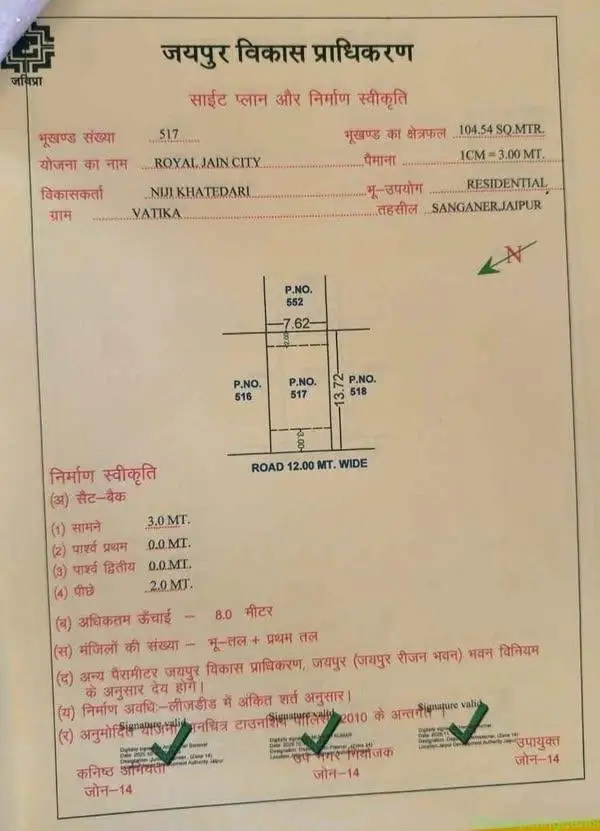 जविप्रा
जयपुर विकास प्राधिकरण
साईट प्लान और निर्माण स्वीकृति
भूखण्ड संख्या 517 भूखण्ड का क्षेत्रफल 104.54 SQ.MTR.
योजना का नाम ROYAL JAIN CITY पैमाना 1CM = 3.00 MT.
विकासकर्ता NIJI KHATEDARI भू-उपयोग RESIDENTIAL
ग्राम VATIKA तहसील SANGANER,JAIPUR
N
P.NO.
552
7.62
2.00
P.NO. P.NO. P.NO.
516 517 518
13.72
3.00
ROAD 12.00 MT. WIDE
निर्माण स्वीकृति
(अ) सैट-बैक
(1) सामने 3.0 MT.
(2) पार्श्व प्रथम 0.0 MT.
(3) पार्श्व द्वितीय 0.0 MT.
(4) पीछे 2.0 MT.
(ब) अधिकतम ऊँचाई - 8.0 मीटर
(स) मंजिलों की संख्या - भू-तल + प्रथम तल
(द) अन्य पैरामीटर जयपुर विकास प्राधिकरण, जयपुर (जयपुर रीजन भवन) भवन विनियम
के अनुसार देय होंगे।
(य) निर्माण अवधि:-लीजडीड में अंकित शर्त अनुसार।
(र) अनुमोदित योजना मानचित्र टाउनशिप पॉलिसी 2010 के अन्तर्गत ।
Signature valid Signature valid Signature valid
कनिष्ठ अभियंता उप नगर नियोजक उपायुक्त
जोन-14 जोन-14 जोन-14